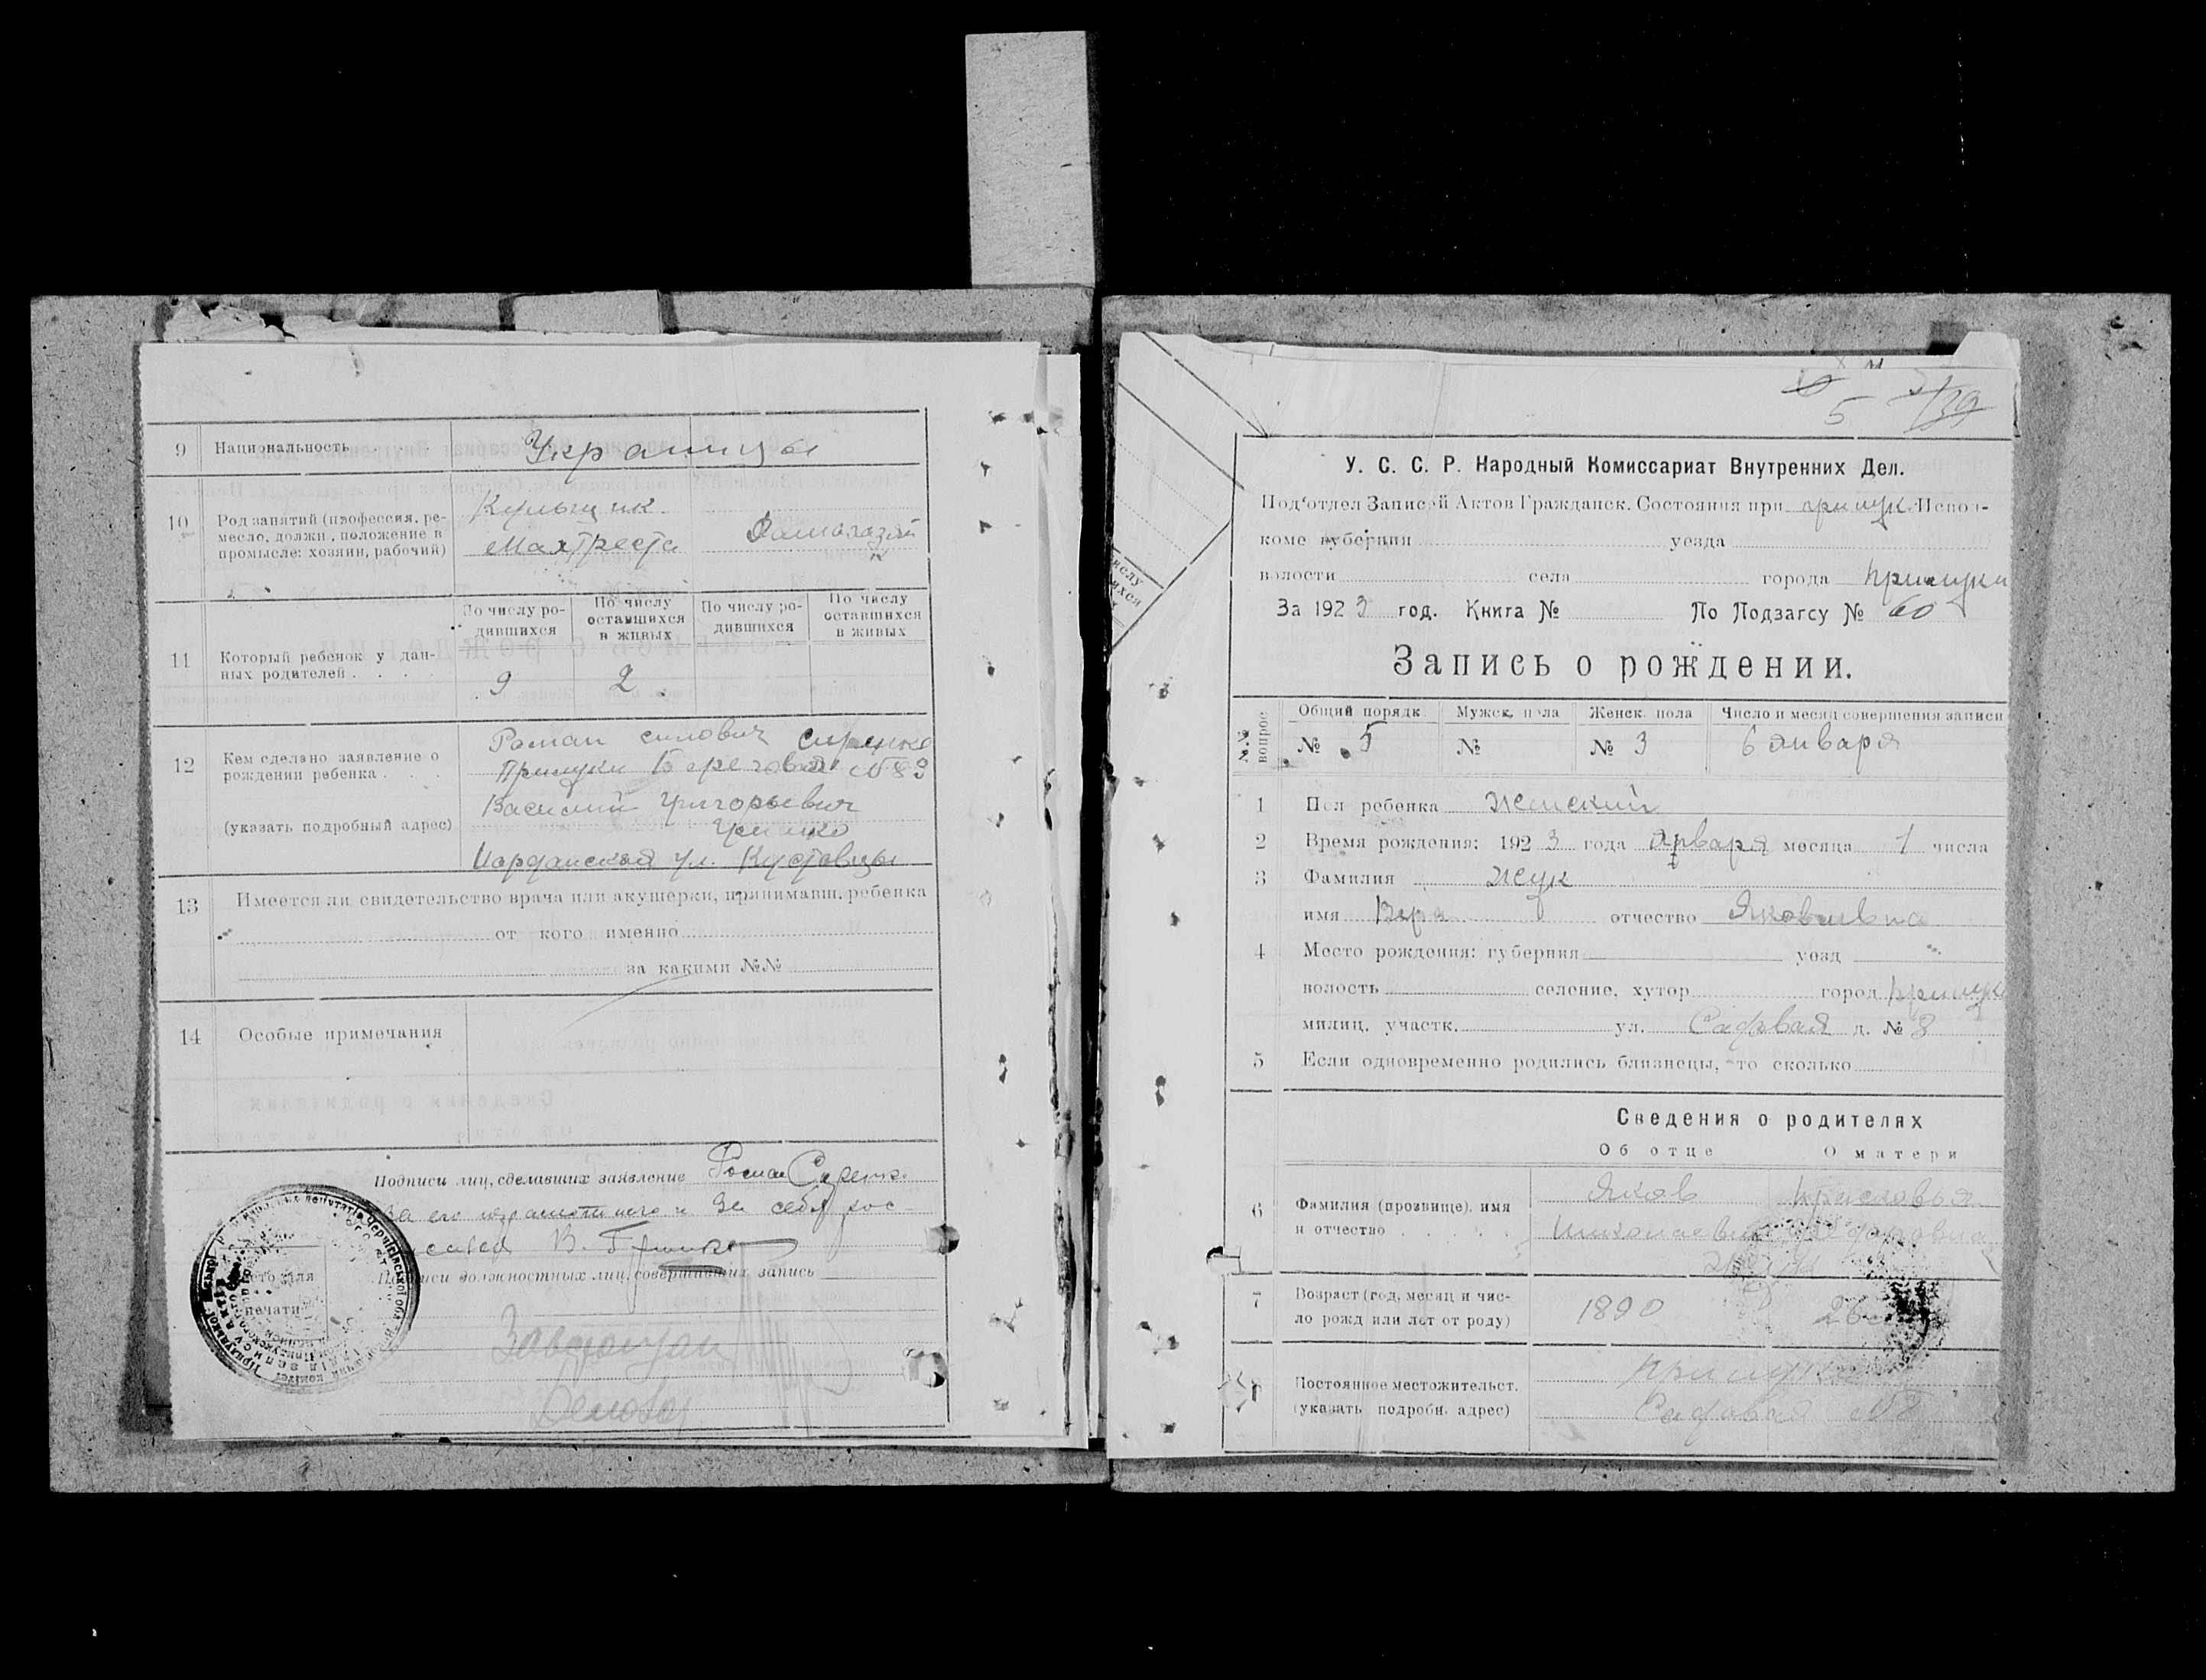 9 Национальность Украинцы
10 Род занятий (профессия, ре-
месло, должн., положение в
промысле: хозяин, рабочий)
Махтреста
По числу ро-
дившихся
По числу
оставшихся
в живых
По числу ро-
дившихся
По числу
оставшихся
в живых
11 Который ребенок у дан-
ных родителей . . . .
9 2
12 Кем сделано заявление о
рождении ребенка . . .
(указать подробный адрес)
Роман
Прилуки Береговая №83
Василий Григорьевич
Иорданская ул. Кустовцы
13 Имеется ли свидетельство врача или акушерки, принимавш. ребенка
от кого именно
за какими №№
14 Особые примечания
Подписи лиц, сделавших заявление Роман
За его неграмотного и за себя рос-
В.
Подписи должностных лиц, совершивших запись
Место для
печати
5
39
У. С. С. Р. Народный Комиссариат Внутренних Дел.
Под'отдел Записей Актов Гражданск. Состояния при Прилук. Испол-
коме губернии уезда
волости села города Прилуки
За 1923 год. Книга № По Подзагсу № 60
Запись о рождении.
№№ вопрос.
Общий порядк. Мужск. пола Женск. пола Число и месяц совершения записи
№ 5 № № 3 6 января
1 Пол ребенка Женский
2 Время рождения: 1923 года Января месяца 1 числа
3 Фамилия Жук
имя Вера отчество Яковлевна
4 Место рождения: губерния уезд
волость селение, хутор город Прилуки
милиц. участк. ул. Садовая д. № 8
5 Если одновременно родились близнецы, то сколько
Сведения о родителях
Об отце О матери
6 Фамилия (прозвище), имя
и отчество . . . . .
Яков Прасковья
Николаевич
Жук
7 Возраст (год, месяц и чис-
ло рожд. или лет от роду)
1890 26
Постоянное местожительст.
(указать подробн. адрес)
Прилуки
Садовая №8